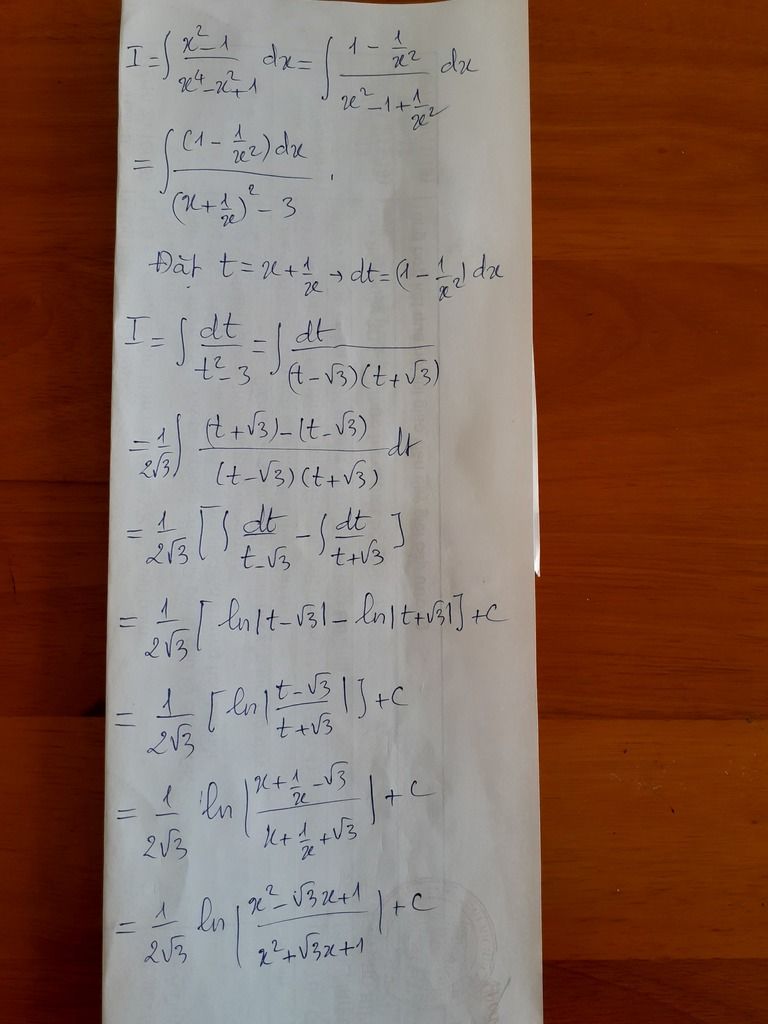 I = ∫ (x² - 1)/(x⁴ - x² + 1) dx = ∫ (1 - 1/x²)/(x² - 1 + 1/x²) dx
= ∫ (1 - 1/x²) dx/((x + 1/x)² - 3) .
Đặt t = x + 1/x → dt = (1 - 1/x²) dx
I = ∫ dt/(t² - 3) = ∫ dt/((t - √3)(t + √3))
= 1/(2√3) ∫ ((t + √3) - (t - √3))/((t - √3)(t + √3)) dt
= 1/(2√3) [∫ dt/(t - √3) - ∫ dt/(t + √3)]
= 1/(2√3) [ln|t - √3| - ln|t + √3|] + C
= 1/(2√3) [ln|(t - √3)/(t + √3)|] + C
= 1/(2√3) ln|(x + 1/x - √3)/(x + 1/x + √3)| + C
= 1/(2√3) ln|(x² - √3x + 1)/(x² + √3x + 1)| + C